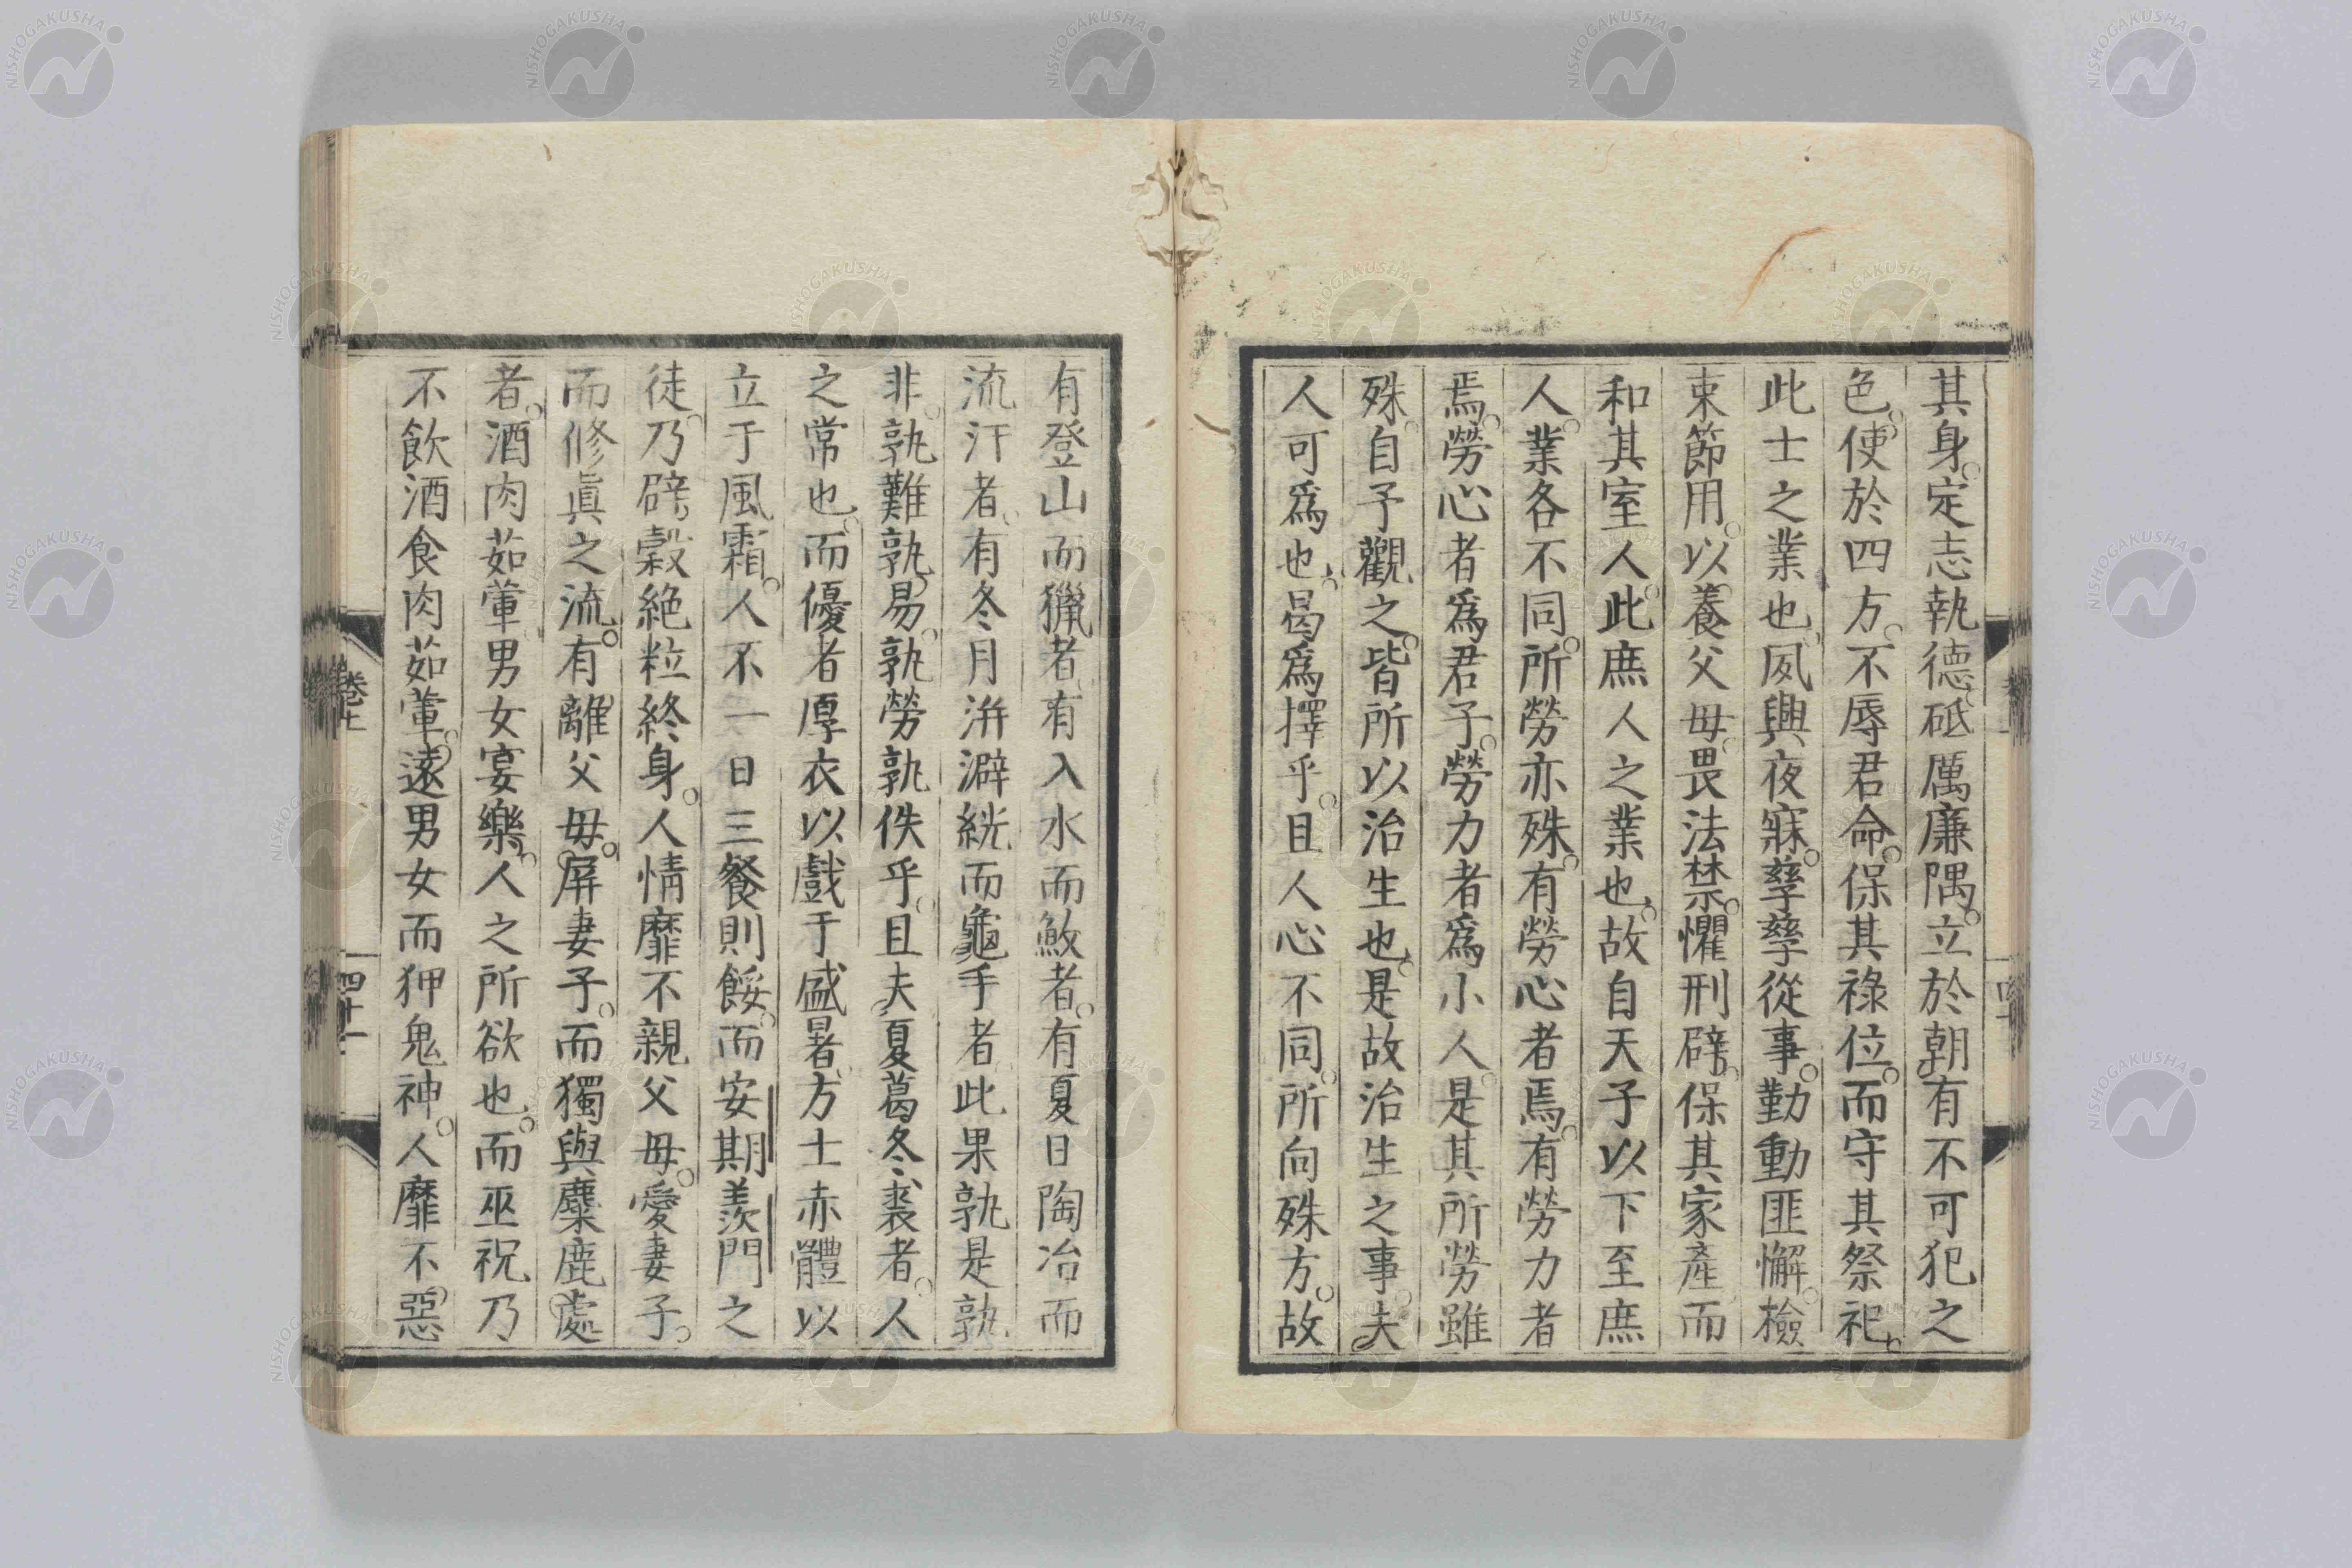 其身。定志執德。砥厲廉隅。立於朝。有不可犯之
色。使於四方。不辱君命。保其祿位。而守其祭祀。
此士之業也。夙興夜寐。孳孳從事。勤動匪懈。檢
束節用。以養父母。畏法禁。懼刑辟。保其家產。而
和其室人。此庶人之業也。故自天子以下至庶
人。業各不同。所勞亦殊。有勞心者焉。有勞力者
焉。勞心者爲君子。勞力者爲小人。是其所勞雖
殊。自予觀之。皆所以治生也。是故治生之事。夫
人可爲也。曷爲擇乎。且人心不同。所向殊方。故
有登山而獵者。有入水而鮫者。有夏日陶冶而
流汗者。有冬月洴澼絖而龜手者。此果孰是孰
非。孰難孰易。孰勞孰佚乎。且夫夏葛冬裘者。人
之常也。而優者厚衣以戲于盛暑。方士赤體以
立于風霜。人不一日三餐則餒。而安期羨門之
徒。乃辟穀絕粒終身。人情靡不親父母。愛妻子。
而修眞之流。有離父母。屏妻子。而獨與麋鹿處
者。酒肉茹葷。男女宴樂。人之所欲也。而巫祝乃
不飲酒食肉茹葷。遠男女而狎鬼神。人靡不惡
卷七
四十一
NISHOGAKUSHA